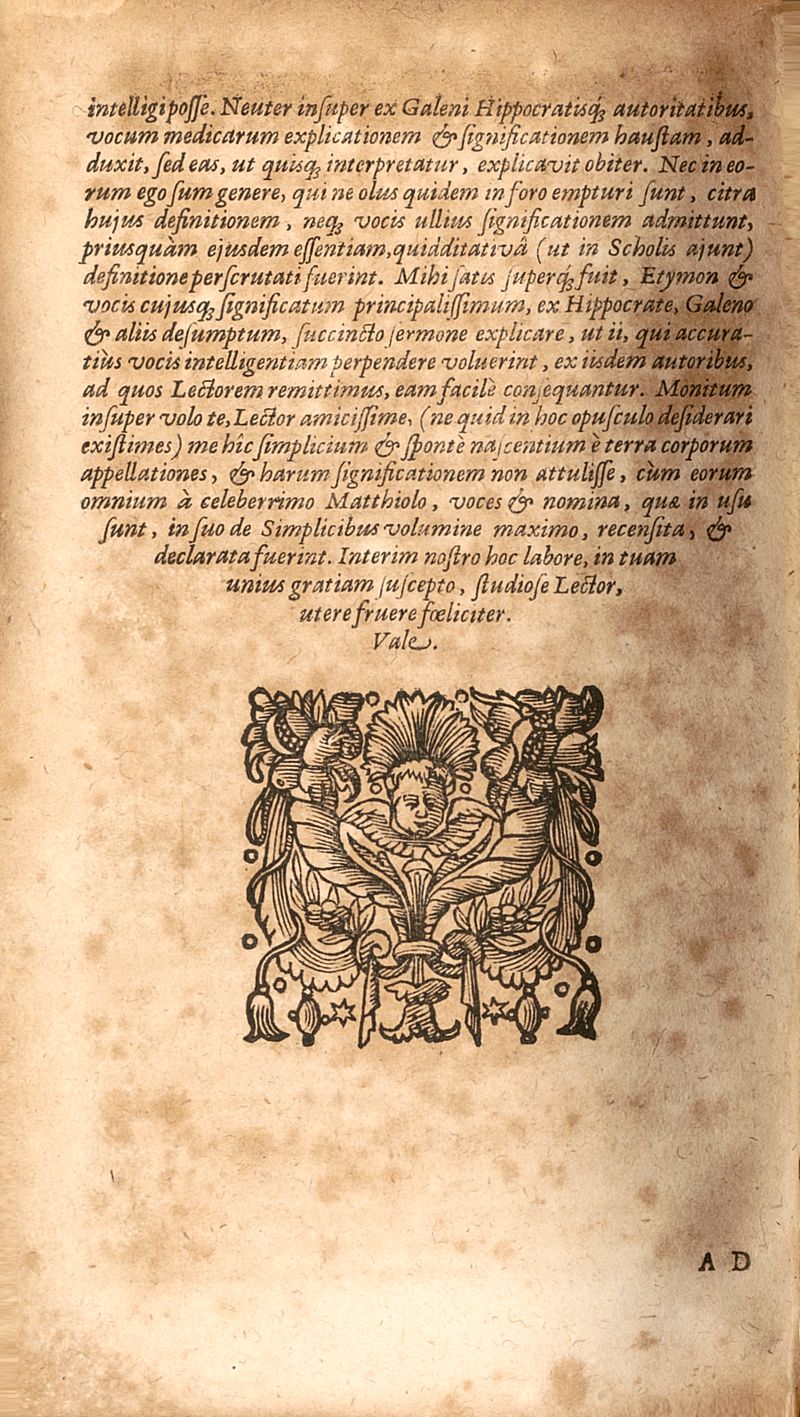 intelligi posſe. Neuter inſuper ex Galeni Hippocratisq́; autoritatibus,
vocum medicarum explicationem & ſignificationem hauſtam, ad-
duxit, ſed eas, ut quisq; interpretatur, explicavit obiter. Nec in eo-
rum ego ſum genere, qui ne olus quidem in foro empturi ſunt, citra
hujus definitionem, neq; vocis ullius ſignificationem admittunt,
priusquàm ejusdem eſſentiam, quidditativâ (ut in Scholis ajunt)
definitione perſcrutati fuerint. Mihi ſatis ſuperq́; fuit, Etymon &
vocis cujusq; ſignificatum principaliſſimum, ex Hippocrate, Galeno
& aliis deſumptum, ſuccincto ſermone explicare, ut ii, qui accura-
tiùs vocis intelligentiam perpendere voluerint, ex iisdem autoribus,
ad quos Lectorem remittimus, eam facilè conſequantur. Monitum
inſuper volo te, Lector amiciſſime, (ne quid in hoc opuſculo deſiderari
exiſtimes) me hîc ſimplicium & ſpontè naſcentium è terra corporum
appellationes, & harum ſignificationem non attuliſſe, cùm eorum
omnium à celeberrimo Matthiolo, voces & nomina, quæ in uſu
ſunt, in ſuo de Simplicibus volumine maximo, recenſita, &
declarata fuerint. Interim noſtro hoc labore, in tuam
unius gratiam ſuſcepto, ſtudioſe Lector,
utere fruere fœliciter.
Vale.
A D